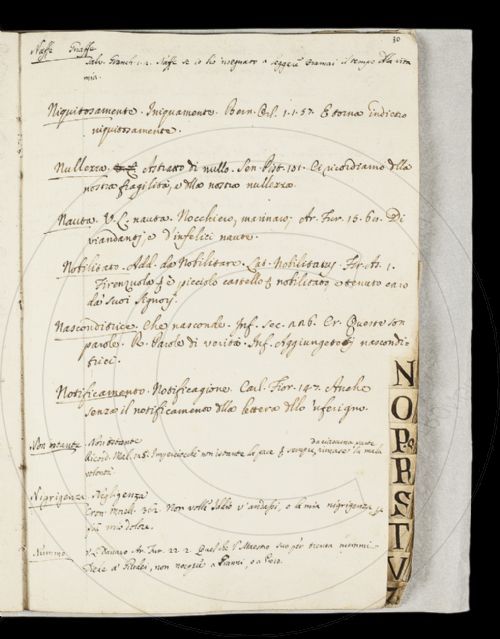 30
Naffe Gnaffe
Salv. Granch. 1. 2. Naffe se io ho insegnato a leggere oramai il tempo della vita
mia.
Niquitosamente. Iniquamente. Bern. Orl. 1. 1. 57. E torna indietro
niquitosamente.
Nullezza. Astratto di nullo. Sen. Pist. 101. Ci ricordiamo della
nostra fragilità, e della nostra nullezza.
Nauta. V. L. nauta. Nocchiero, marinaio; Ar. Fur. 15. 60. Di
viandanti, e d'infelici naute.
Nobilitato. Add. da Nobilitare. Lat. Nobilitatus. Fir. As. 1.
Firenzuola è picciolo castello nobilitato e tenuto caro
da' suoi Signori.
Nasconditrice. Che nasconde. Inf. sec. Cr. Queste son
parole. R. Parole di verità. Inf. Aggiungete nascondi-
trici.
Notificamento. Notificagione. Carl. Fior. 147. Anche
senza il notificamento della lettera dello 'nferigno.
Non istante. Non ostante
da ciascuna parte
Ricord. Mal. 125. Imperciocchè non istante la pace sempre rimase la mala
volontà.
Nigrigenza. Negligenza
Cron. Morell. 362. Non volli Iddio v'andassi, o la mia nigrigenza
fu mio dolze.
Nummo
V. L. Danaro. Ar. Fur. 22. 2. Quel che 'l Maestro suo per trenta nummi
Diede a' Giudei, non nocque a Gianni, o a Piero.
N
O
P
R
S
T
V
Z